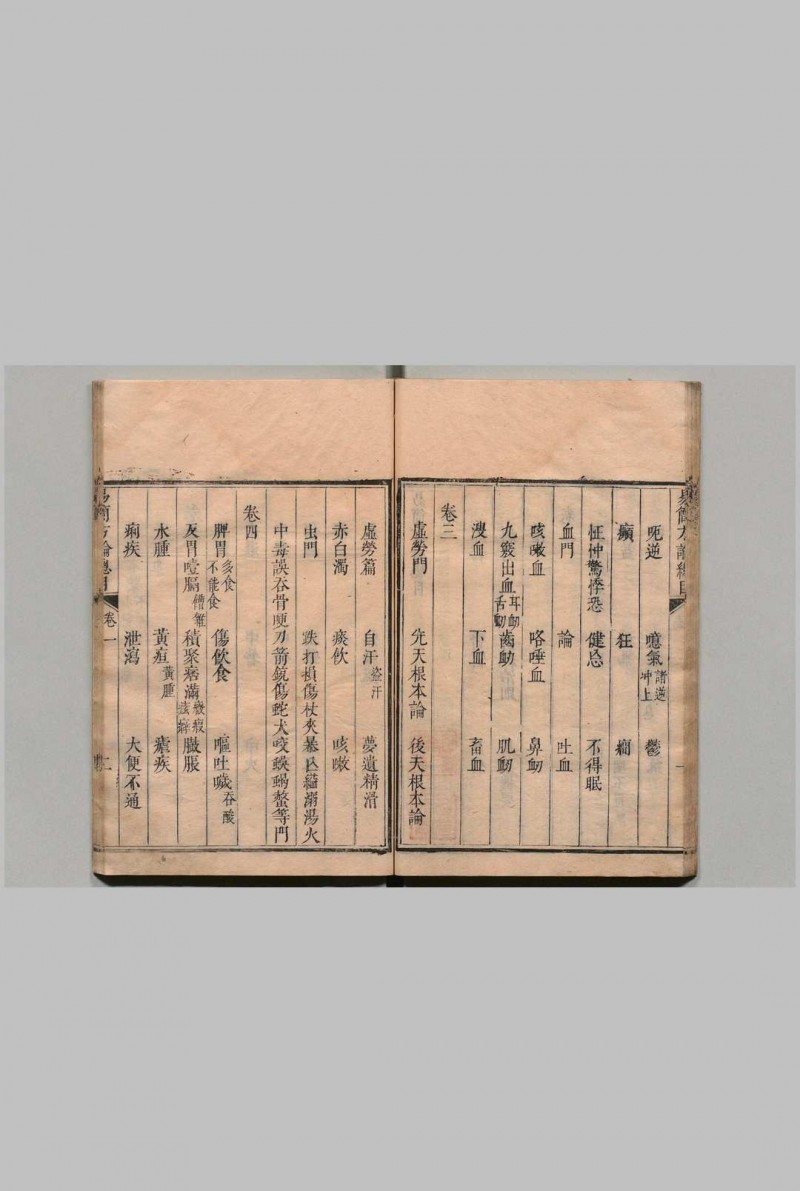 易簡方論總目
呃逆 噫氣 諸逆冲上 鬱
癲 狂 癇
怔忡驚悸恐 健忘 不得眠
血門 論 吐血
咳嗽血 咯唾血 鼻衂
九竅出血 耳衂舌衂 齒衂 肌衂
溲血 下血 畜血
卷三
虛勞門 先天根本論 後天根本論
虛勞篇 自汗 盜汗 夢遺精滑
赤白濁 痰飲 咳嗽
虫門 跌打損傷杖夾 湯火
中毒誤吞骨哽刀箭銃傷蛇犬咬蜈蝎螫等門
卷四
脾胃 多食不能食 傷飲食 嘔吐噦 吞酸
反胃噎膈 嘈雜 積聚痞滿 癥瘕痃癖 臌脹
水腫 黃疸 黃腫 瘧疾
痢疾 泄瀉 大便不通
易簡方論總目 卷一 二